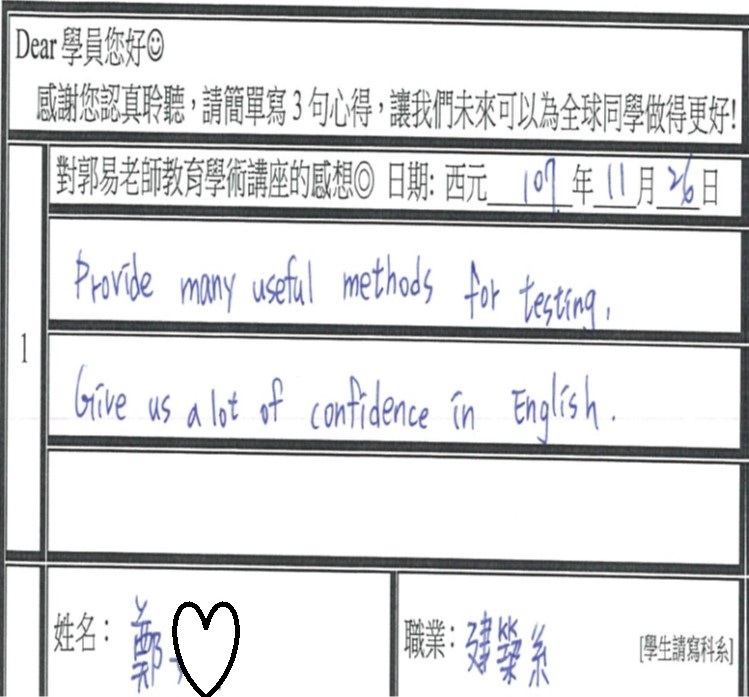 Dear 學員您好☺
感謝您認真聆聽，請簡單寫 3 句心得，讓我們未來可以為全球同學做得更好!
對郭易老師教育學術講座的感想◎ 日期: 西元 107 年 11 月 26 日
Provide many useful methods for testing,
1
Give us a lot of confidence in English.
姓名： 鄭
職業： 建築系 [學生請寫科系]